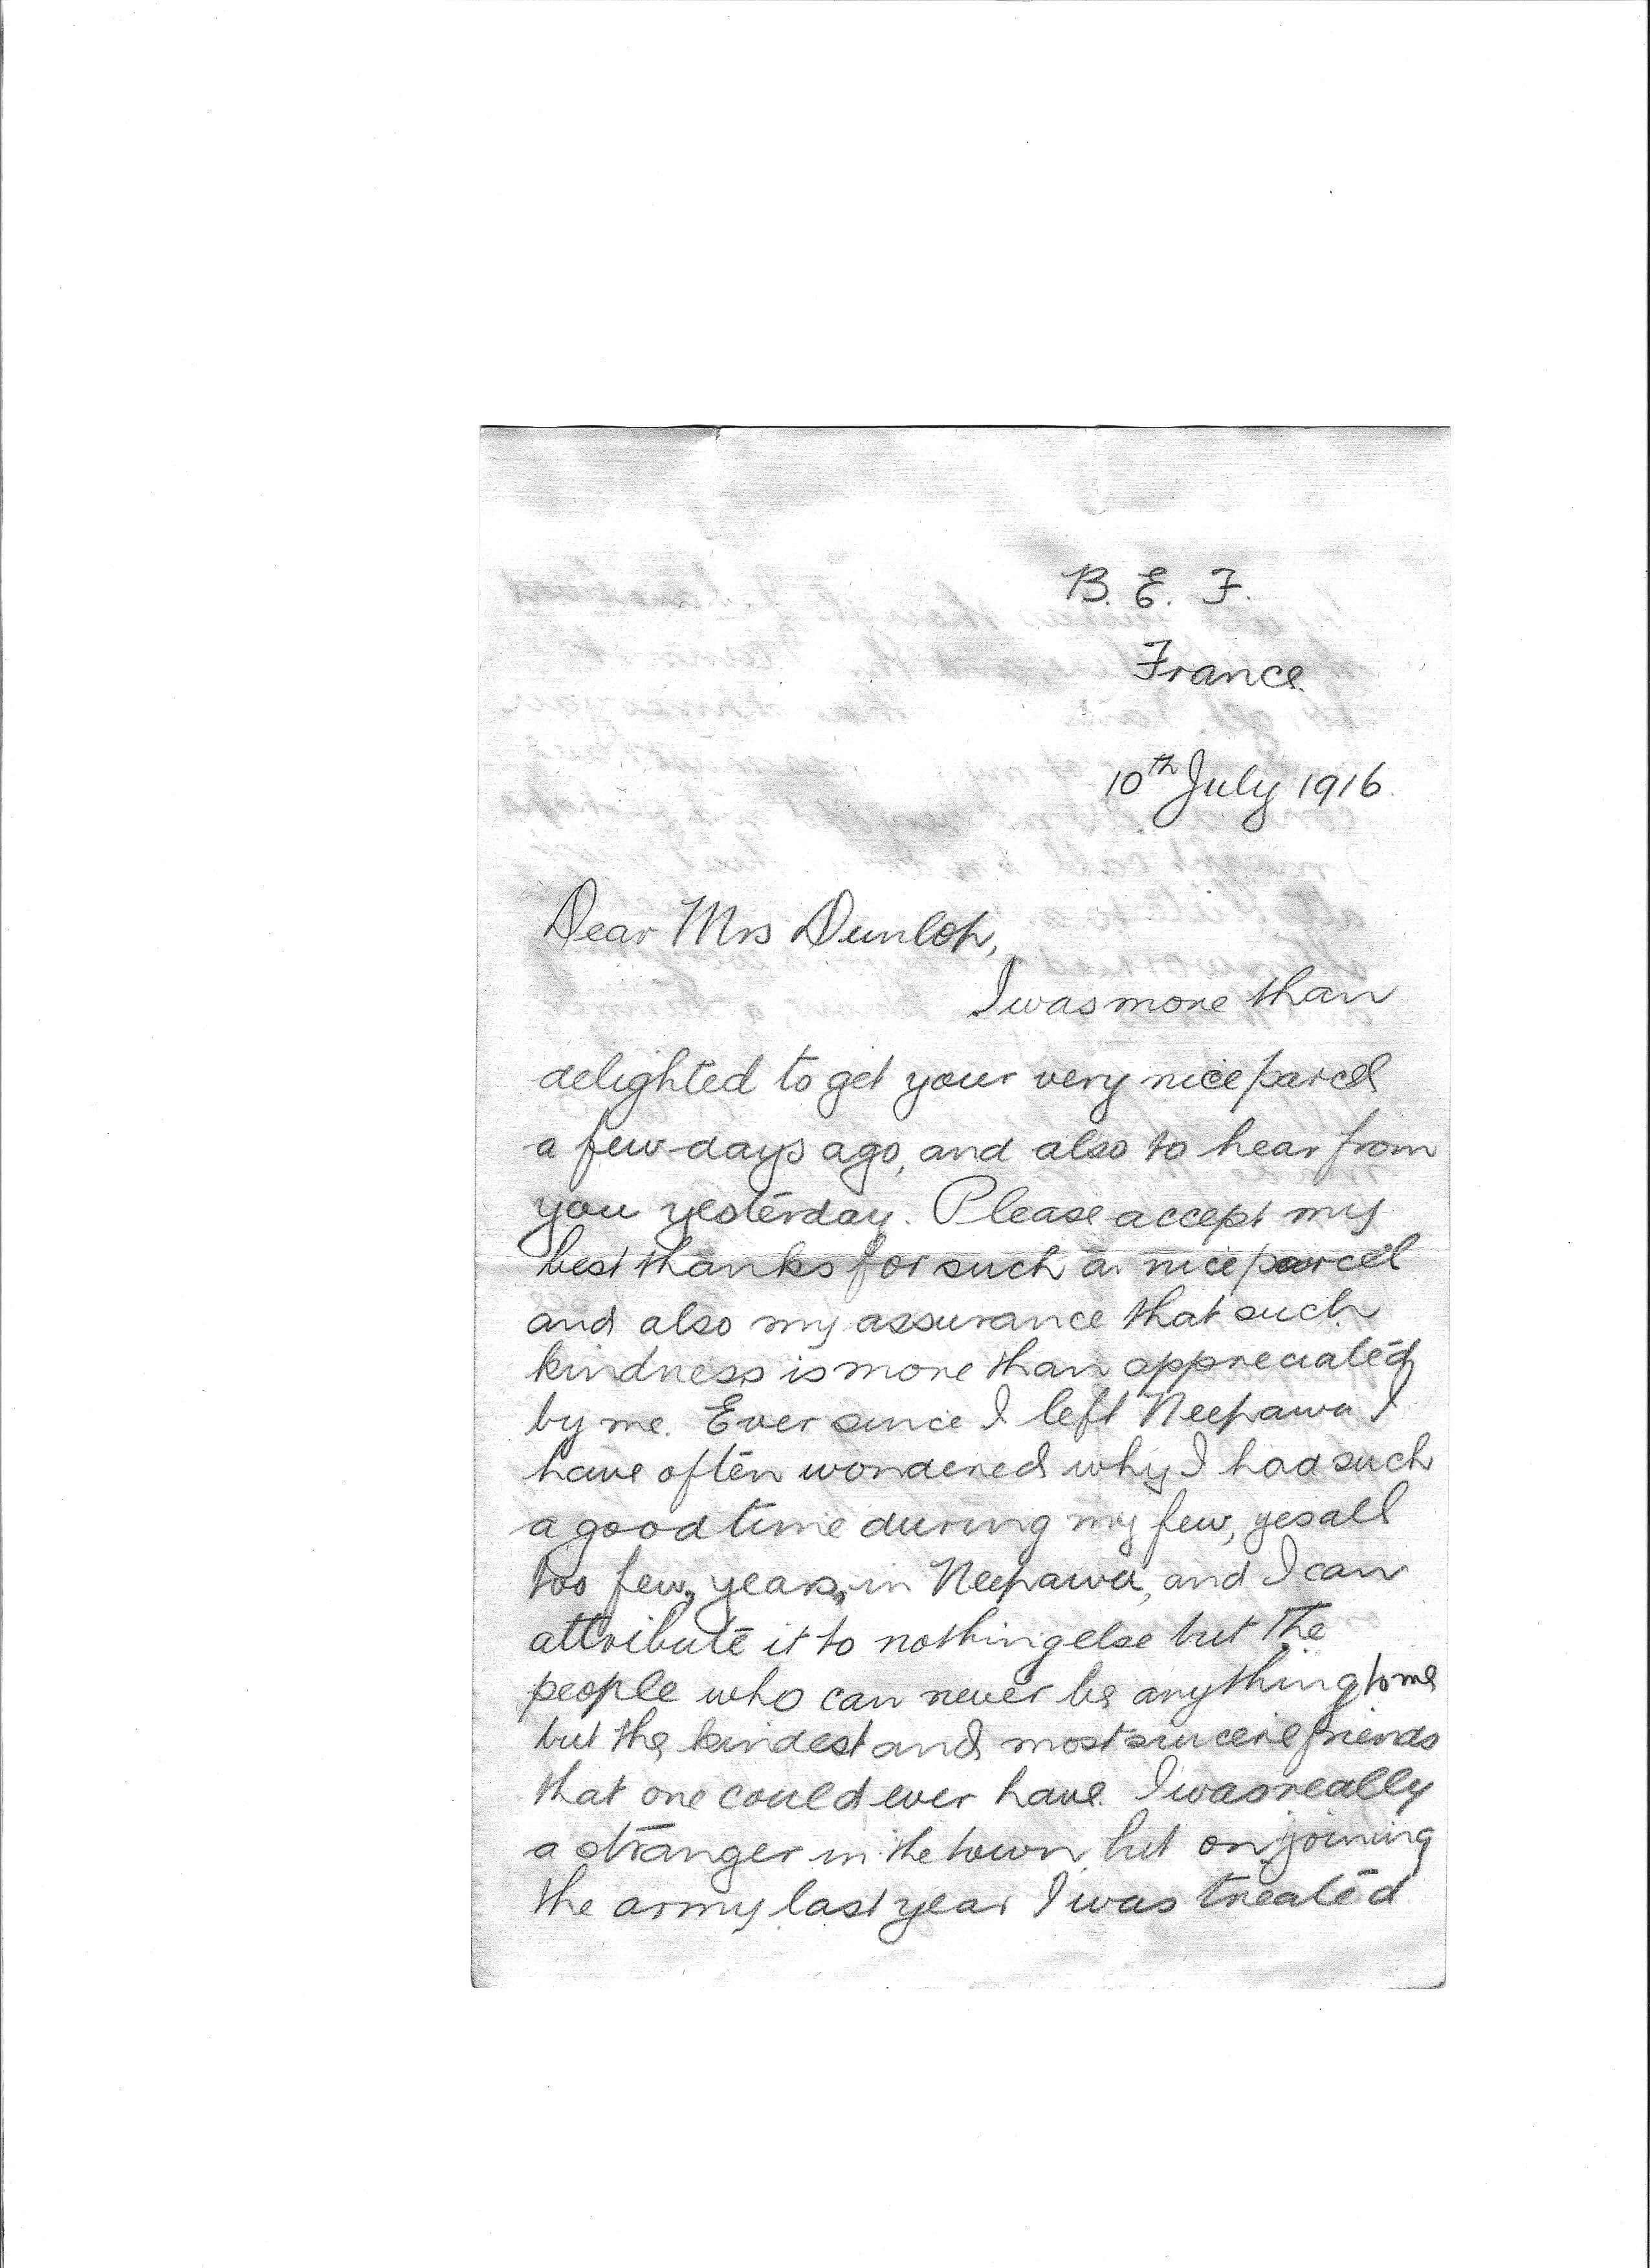 B. E. F.
France.
10th July 1916.
Dear Mrs Dunlop,
I was more than
delighted to get your very nice parcel
a few days ago, and also to hear from
you yesterday. Please accept my
best thanks for such a nice parcel
and also my assurance that such
kindness is more than appreciated
by me. Ever since I left Neepawa I
have often wondered why I had such
a good time during my few, yes all
too few, years, in Neepawa, and I can
attribute it to nothing else but the
people who can never be anything to me
but the kindest and most sincere friends
that one could ever have. I was really
a stranger in the town, but on joining
the army last year I was treated